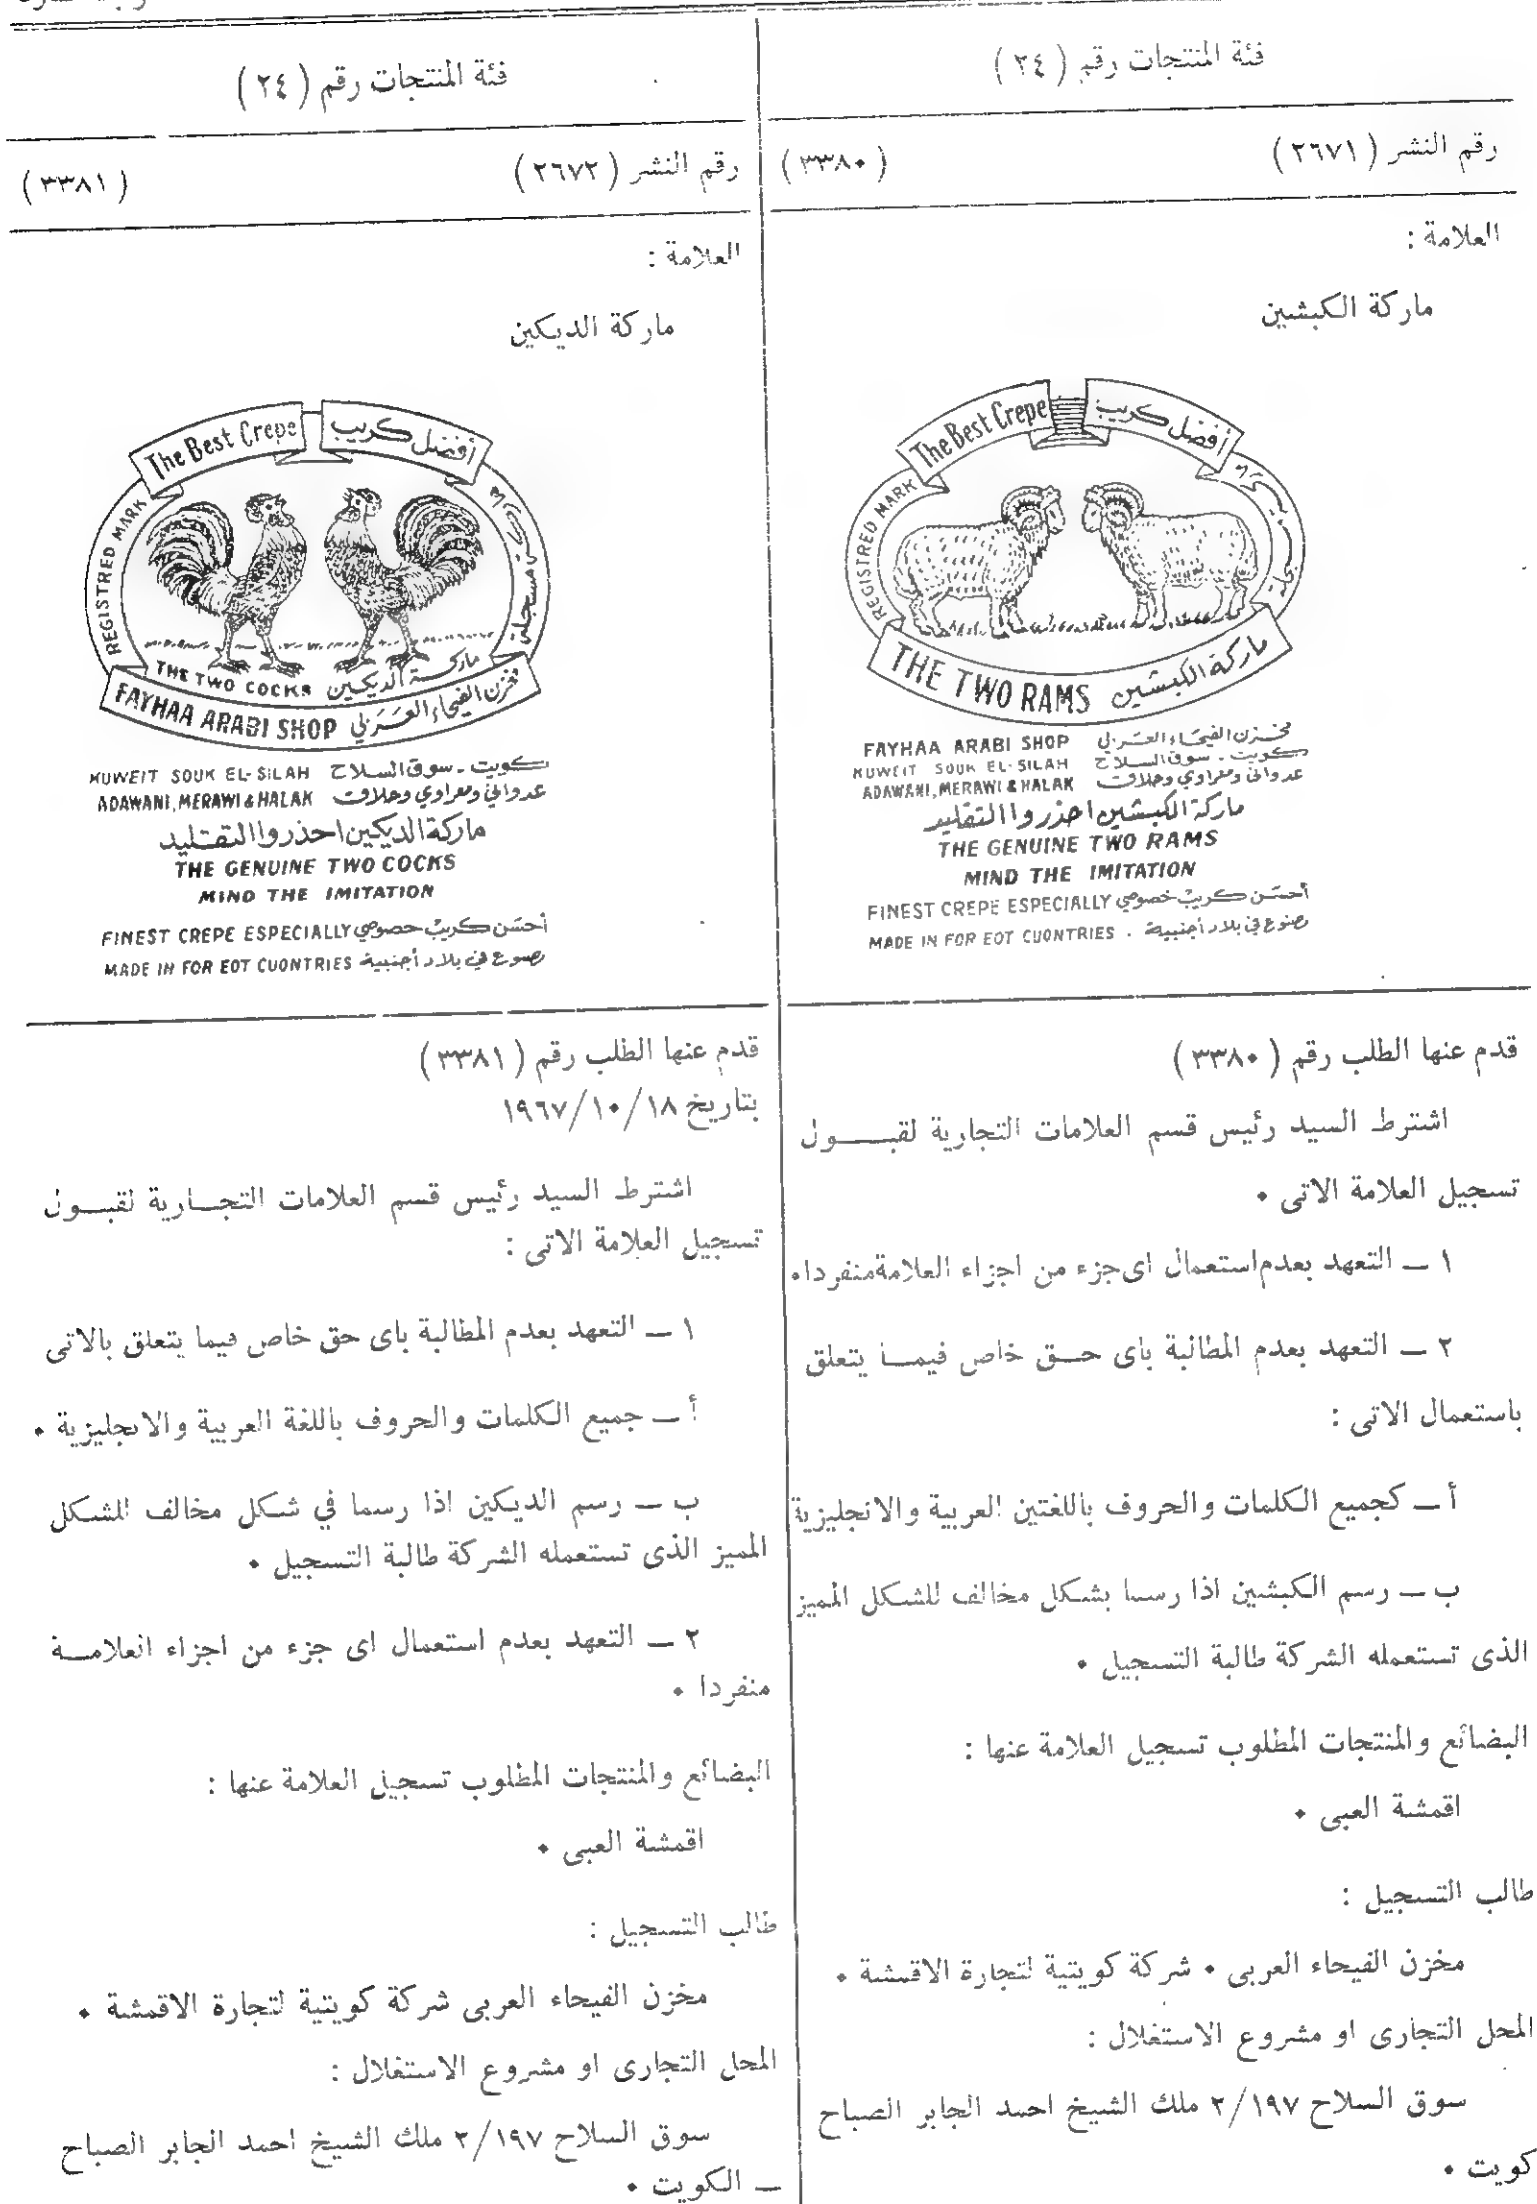 فئة المنتجات رقم ( ٢٤ )
رقم النشر ( ٢٦٧١ ) ( ٣٣٨٠ )
العلامة :
ماركة الكبشين
The Best Crepe أفضل كريب
REGISTRED MARK
THE TWO RAMS ماركة الكبشين
FAYHAA ARABI SHOP مخزن الفيحاء العربي
KUWEIT SOUK EL-SILAH كويت - سوق السلاح
ADAWANI, MERAWI & HALAK عدواني ومعراوي وحلاق
ماركة الكبشين احذروا التقليد
THE GENUINE TWO RAMS
MIND THE IMITATION
FINEST CREPE ESPECIALLY أحسن كريب خصوصي
MADE IN FOR EOT CUONTRIES . مصنوع في بلاد أجنبية
قدم عنها الطلب رقم ( ٣٣٨٠ )
اشترط السيد رئيس قسم العلامات التجارية لقبول
تسجيل العلامة الاتى .
١ — التعهد بعدم استعمال اى جزء من اجزاء العلامة منفردا .
٢ — التعهد بعدم المطالبة باى حق خاص فيما يتعلق
باستعمال الاتى :
أ — كجميع الكلمات والحروف باللغتين العربية والانجليزية
ب — رسم الكبشين اذا رسما بشكل مخالف للشكل المميز
الذى تستعمله الشركة طالبة التسجيل .
البضائع والمنتجات المطلوب تسجيل العلامة عنها :
اقمشة العبى .
طالب التسجيل :
مخزن الفيحاء العربى . شركة كويتية لتجارة الاقمشة .
المحل التجارى او مشروع الاستغلال :
سوق السلاح ٢/١٩٧ ملك الشيخ احمد الجابر الصباح
كويت .
فئة المنتجات رقم ( ٢٤ )
رقم النشر ( ٢٦٧٢ ) ( ٣٣٨١ )
العلامة :
ماركة الديكين
The Best Crepe أفضل كريب
REGISTRED MARK مسجلة
THE TWO COCKS ماركة الديكين
FAYHAA ARABI SHOP مخزن الفيحاء العربي
KUWEIT SOUK EL-SILAH كويت - سوق السلاح
ADAWANI, MERAWI & HALAK عدواني ومعراوي وحلاق
ماركة الديكين احذروا التقليد
THE GENUINE TWO COCKS
MIND THE IMITATION
FINEST CREPE ESPECIALLY أحسن كريب خصوصي
MADE IN FOR EOT CUONTRIES مصنوع في بلاد أجنبية
قدم عنها الطلب رقم ( ٣٣٨١ )
بتاريخ ١٩٦٧/١٠/١٨
اشترط السيد رئيس قسم العلامات التجارية لقبول
تسجيل العلامة الاتى :
١ — التعهد بعدم المطالبة باى حق خاص فيما يتعلق بالاتى
أ — جميع الكلمات والحروف باللغة العربية والانجليزية .
ب — رسم الديكين اذا رسما في شكل مخالف للشكل
المميز الذى تستعمله الشركة طالبة التسجيل .
٢ — التعهد بعدم استعمال اى جزء من اجزاء العلامة
منفردا .
البضائع والمنتجات المطلوب تسجيل العلامة عنها :
اقمشة العبى .
طالب التسجيل :
مخزن الفيحاء العربى شركة كويتية لتجارة الاقمشة .
المحل التجارى او مشروع الاستغلال :
سوق السلاح ٢/١٩٧ ملك الشيخ احمد الجابر الصباح
— الكويت .